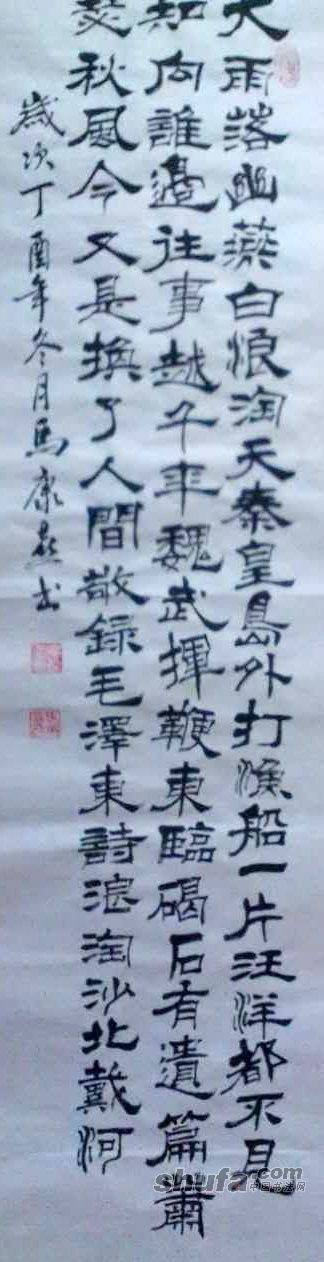 大雨落幽燕白浪淘天秦皇島外打漁船一片汪洋都不見
知向誰邊往事越千年魏武揮鞭東臨碣石有遺篇蕭
瑟秋風今又是換了人間敬録毛澤東詩浪淘沙北戴河
歲次丁酉年冬月馬康書
shufa.com
中国书法网